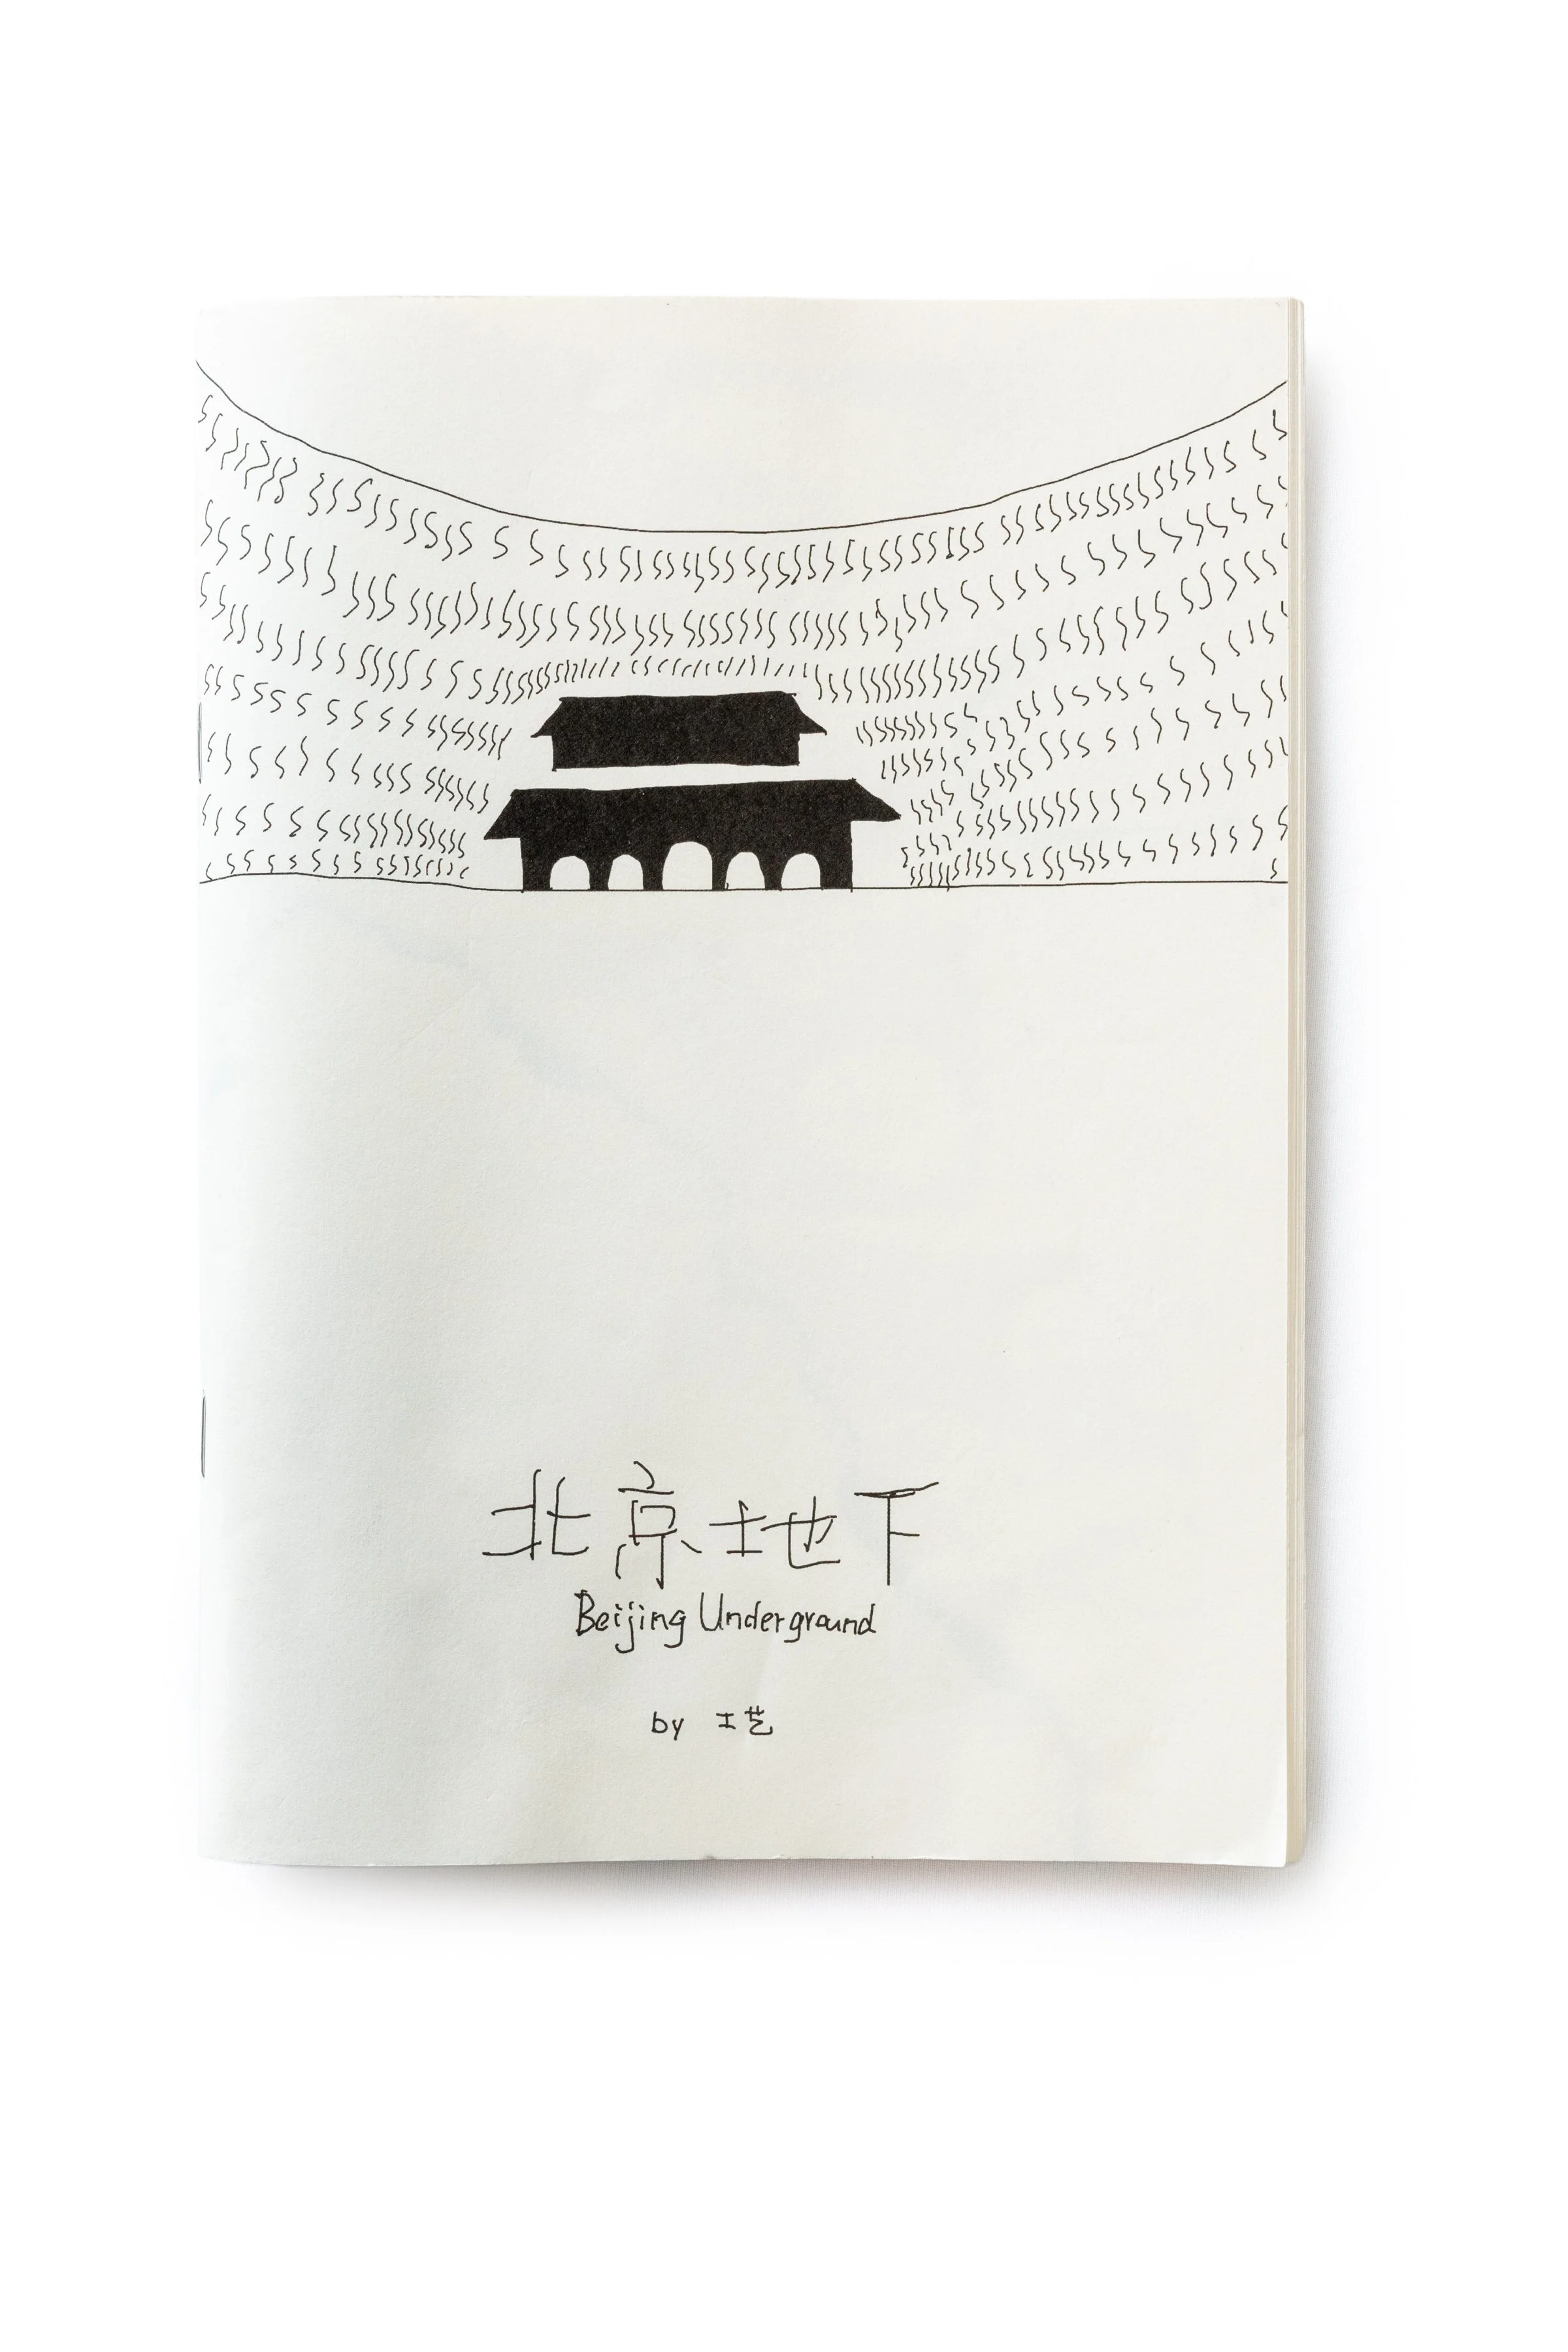 北京地下
Beijing Underground
by 工艺